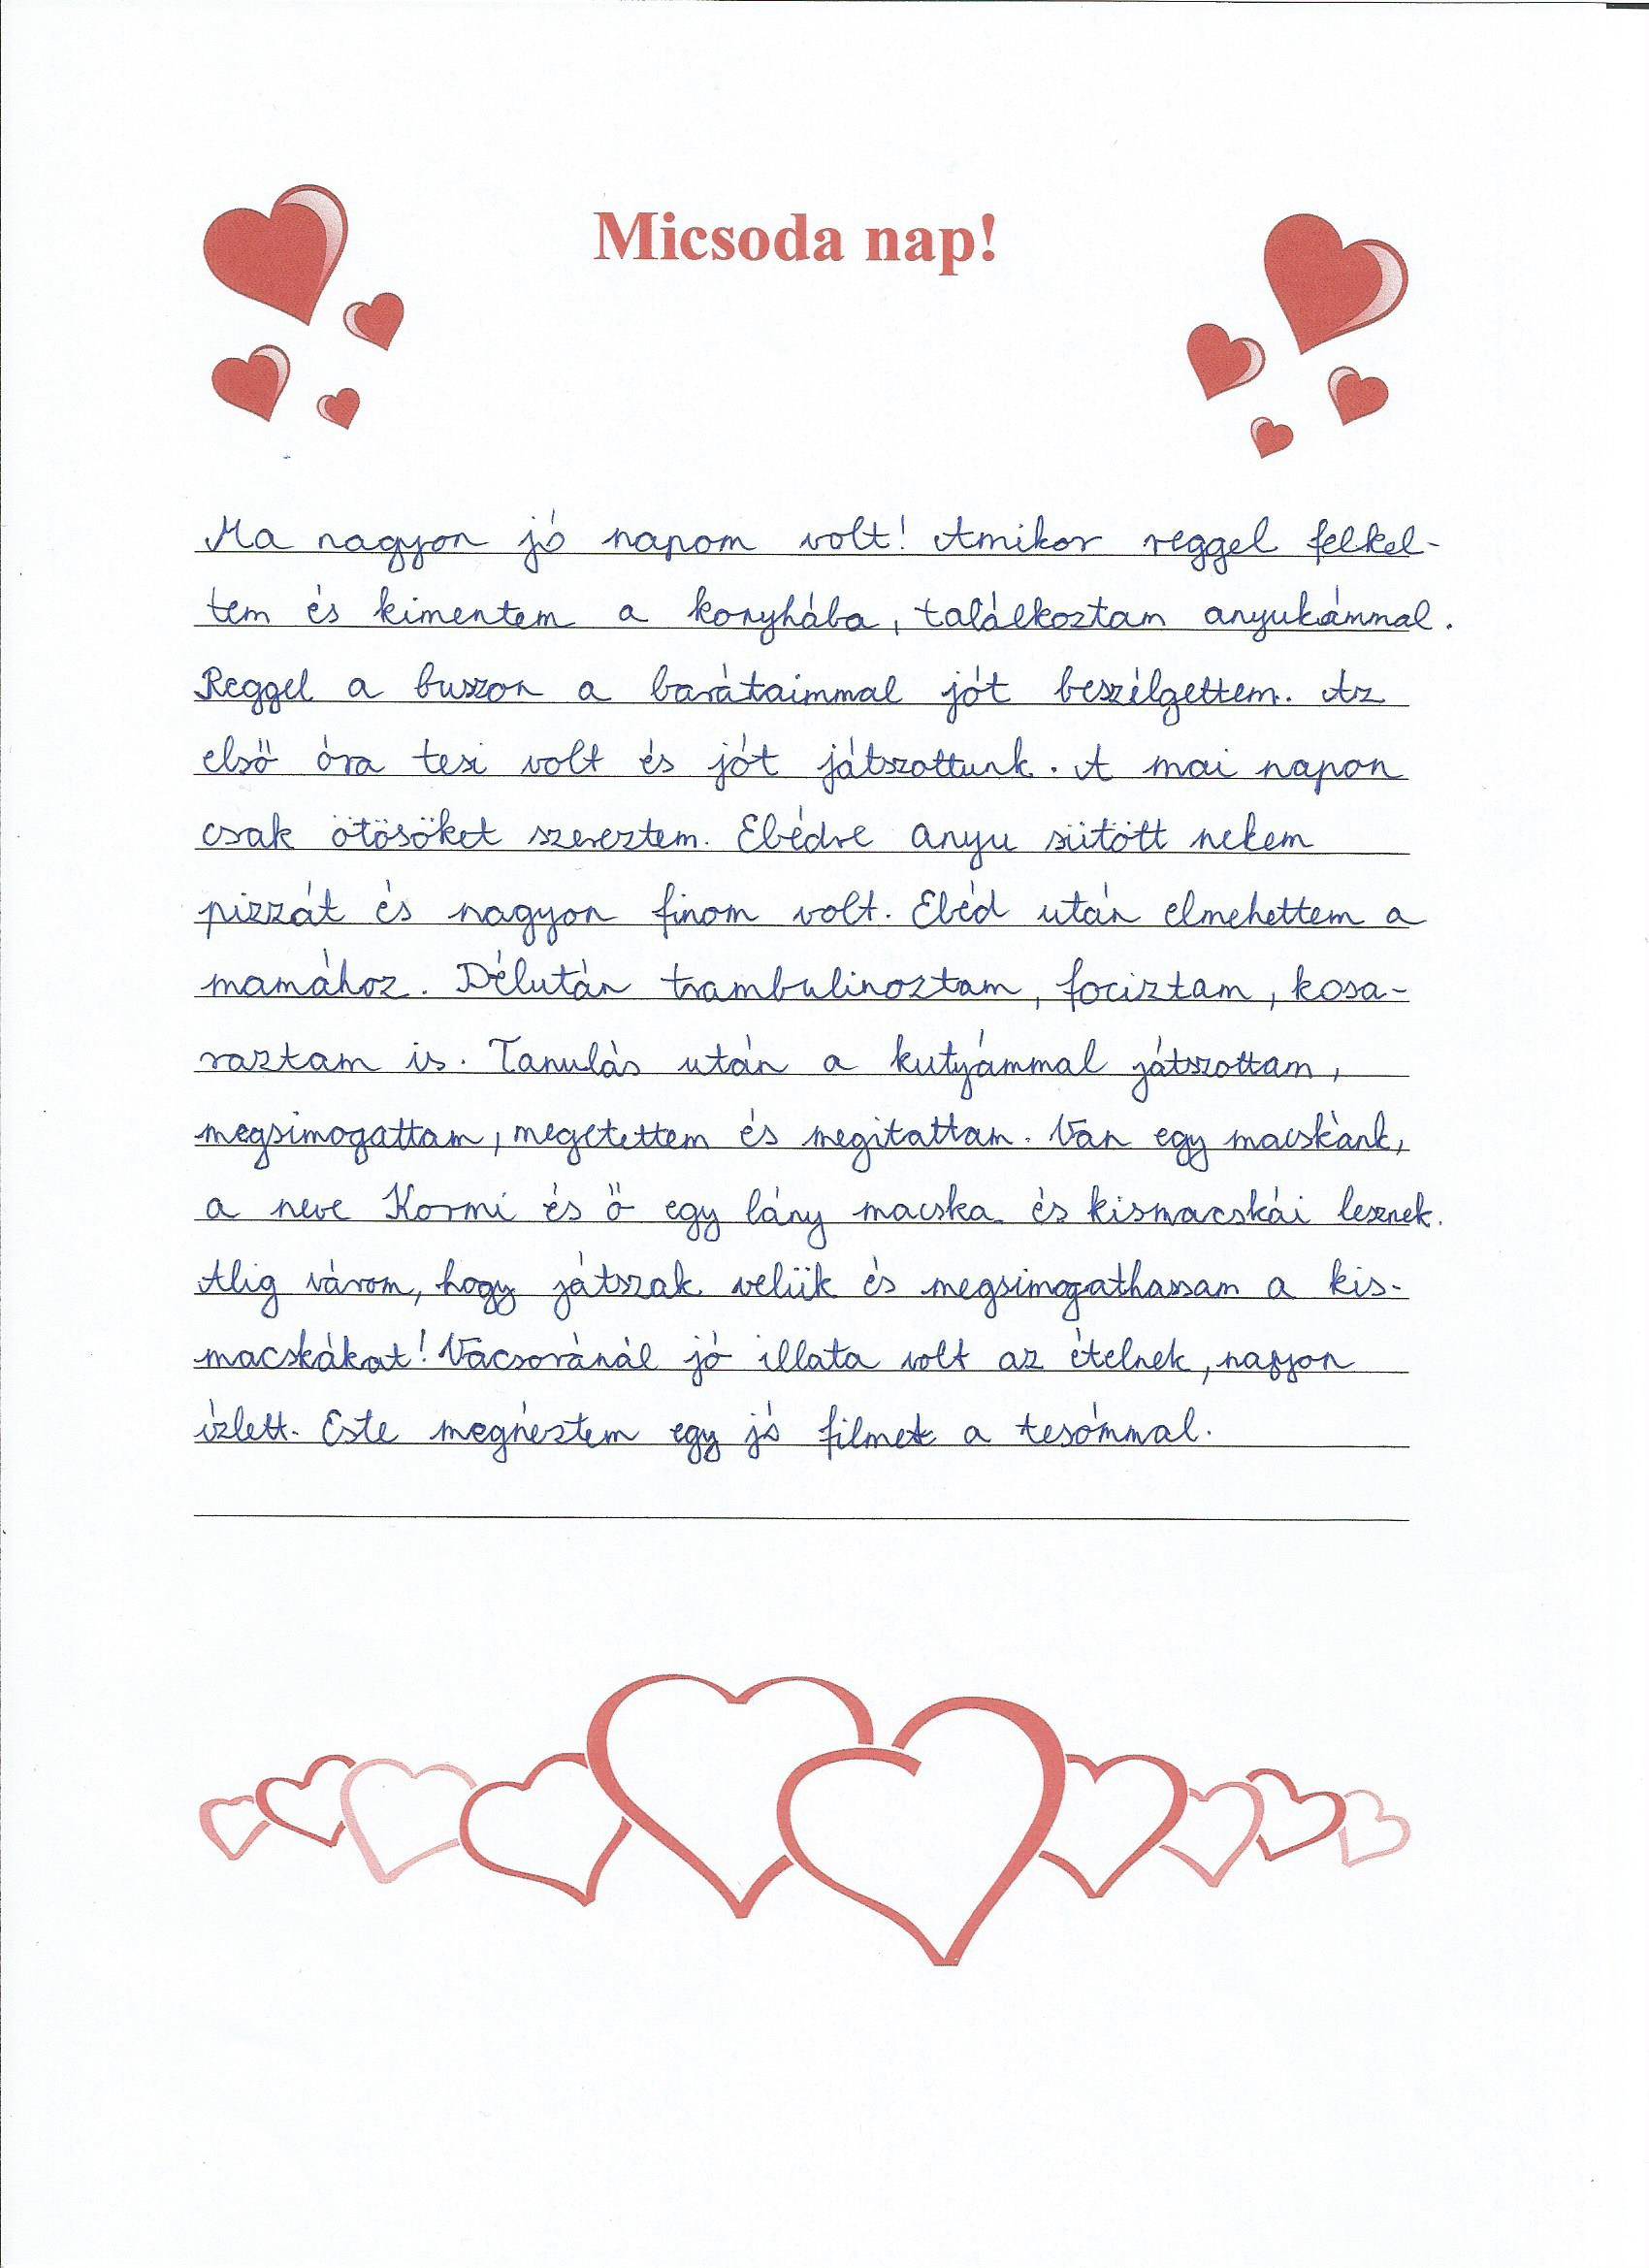 Micsoda nap!
Ma nagyon jó napom volt! Amikor reggel felkel-
tem és kimentem a konyhába, találkoztam anyukámmal.
Reggel a buszon a barátaimmal jót beszélgettem. Az
első óra tesi volt és jót játszottunk. A mai napon
csak ötösöket szereztem. Ebédre anyu sütött nekem
pizzát és nagyon finom volt. Ebéd után elmehettem a
mamához. Délután trambulinoztam, fociztam, kosa-
raztam is. Tanulás után a kutyámmal játszottam,
megsimogattam, megetettem és megitattam. Van egy macskánk,
a neve Kormi és ő egy lány macska és kismacskái lesznek.
Alig várom, hogy játszak velük és megsimogathassam a kis-
macskákat! Vacsoránál jó illata volt az ételnek, nagyon
ízlett. Este megnéztem egy jó filmet a tesómmal.